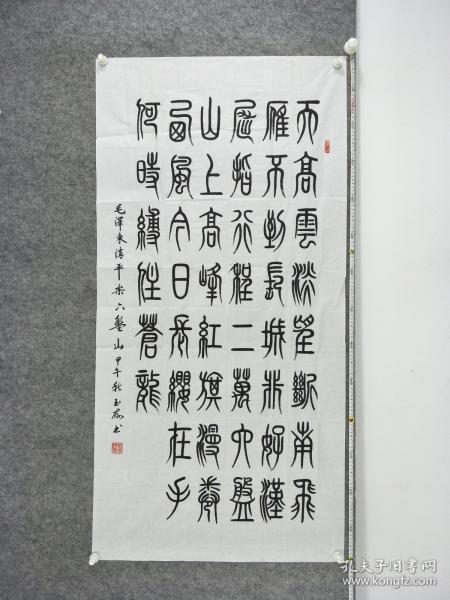 天高雲淡望斷南飛
雁不到長城非好漢
屈指行程二萬六盤
山上高峰紅旗漫卷
西風今日長纓在手
何時縛住蒼龍
毛澤東清平樂六盤山 甲午秋玉书
孔夫子旧书网
www.kongfz.com